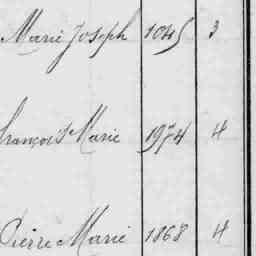 Marie Joseph 1045 3
François Marie 1974 4
Pierre Marie 1868 4